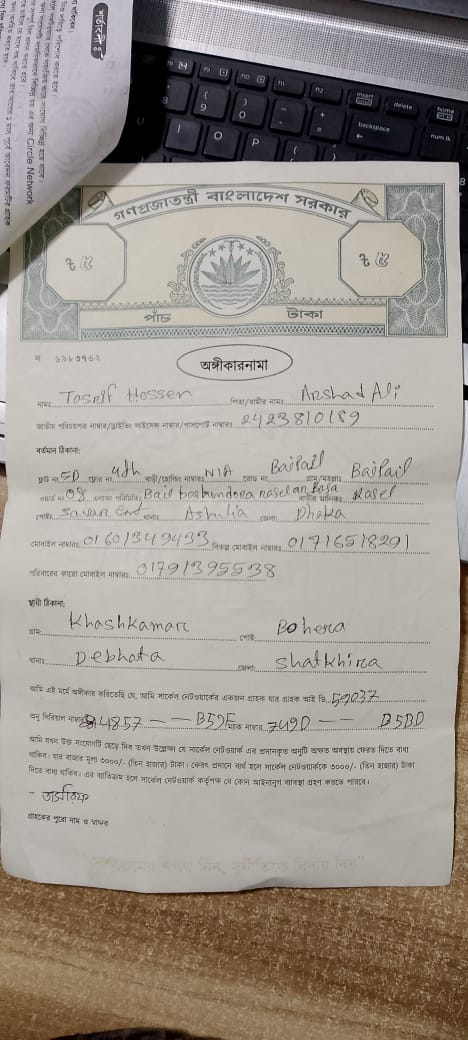 শর্তাবলী ঃ
Circle Network
insert
delete
home
backspace
num lk
গণপ্রজাতন্ত্রী বাংলাদেশ সরকার
৳ ৫
৳ ৫
পাঁচ টাকা
অঙ্গীকারনামা
নামঃ Tasrif Hossen পিতা/স্বামীর নামঃ Arshad Ali
জাতীয় পরিচয়পত্র নাম্বার/ড্রাইভিং লাইসেন্স নাম্বার/পাসপোর্ট নাম্বারঃ 2423810189
বর্তমান ঠিকানা:
ফ্লাট নং 5D ফ্লোর নং 4th বাড়ী/হোল্ডিং নাম্বারঃ N/A রোড নং Baipail গ্রাম/মহল্লাঃ Baipail
ওয়ার্ড নং 08 এলাকা পরিচিতিঃ Bail bashundora বাড়ীর মালিকঃ Rasel
পোষ্টঃ Savar Cant থানাঃ Ashulia জেলাঃ Dhaka
মোবাইল নাম্বারঃ 01601349433 বিকল্প মোবাইল নাম্বারঃ 01716518291
পরিবারের কারো মোবাইল নাম্বারঃ 01791395538
স্থায়ী ঠিকানা:
গ্রামঃ Khashkamar পোষ্টঃ Bohera
থানাঃ Debhata জেলাঃ Shatkhira
আমি এই মর্মে অঙ্গীকার করিতেছি যে, আমি সার্কেল নেটওয়ার্কের একজন গ্রাহক যার গ্রাহক আই ডি. 59037
অনু সিরিয়াল নাম্বারঃ 4857 -- B59E ম্যাক নাম্বার 749D -- B5BD
আমি যখন উক্ত সংযোগটি ছেড়ে দিব তখন উল্লেক্ষ্য যে সার্কেল নেটওয়ার্ক এর প্রদানকৃত অনুটি অক্ষত অবস্থায় ফেরত দিতে বাধ্য
থাকিব। যার বাজার মূল্য ৩০০০/- (তিন হাজার) টাকা। ফেরৎ প্রদানে ব্যর্থ হলে সার্কেল নেটওয়ার্ককে ৩০০০/- (তিন হাজার) টাকা
দিতে বাধ্য থাকিব। এর ব্যতিক্রম হলে সার্কেল নেটওয়ার্ক কর্তৃপক্ষ যে কোন আইনানুগ ব্যাবস্থা গ্রহণ করতে পারবে।
- তাসরিফ
গ্রাহকের পুরো নাম ও স্বাক্ষর